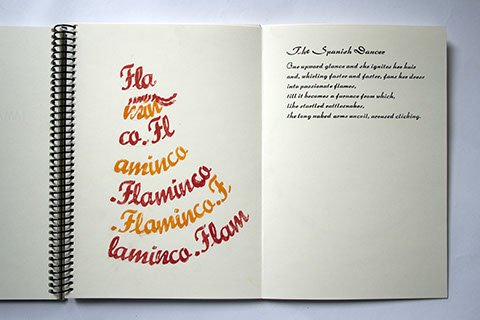 Fla
min
co.Fl
aminco
.Flaminco
.Flaminco.F.
laminco.Flam
The Spanish Dancer
One upward glance and she ignites her hair
and, whirling faster and faster, fans her dress
into passionate flames,
till it becomes a furnace from which,
like startled rattlesnakes,
the long naked arms uncoil, aroused clicking.